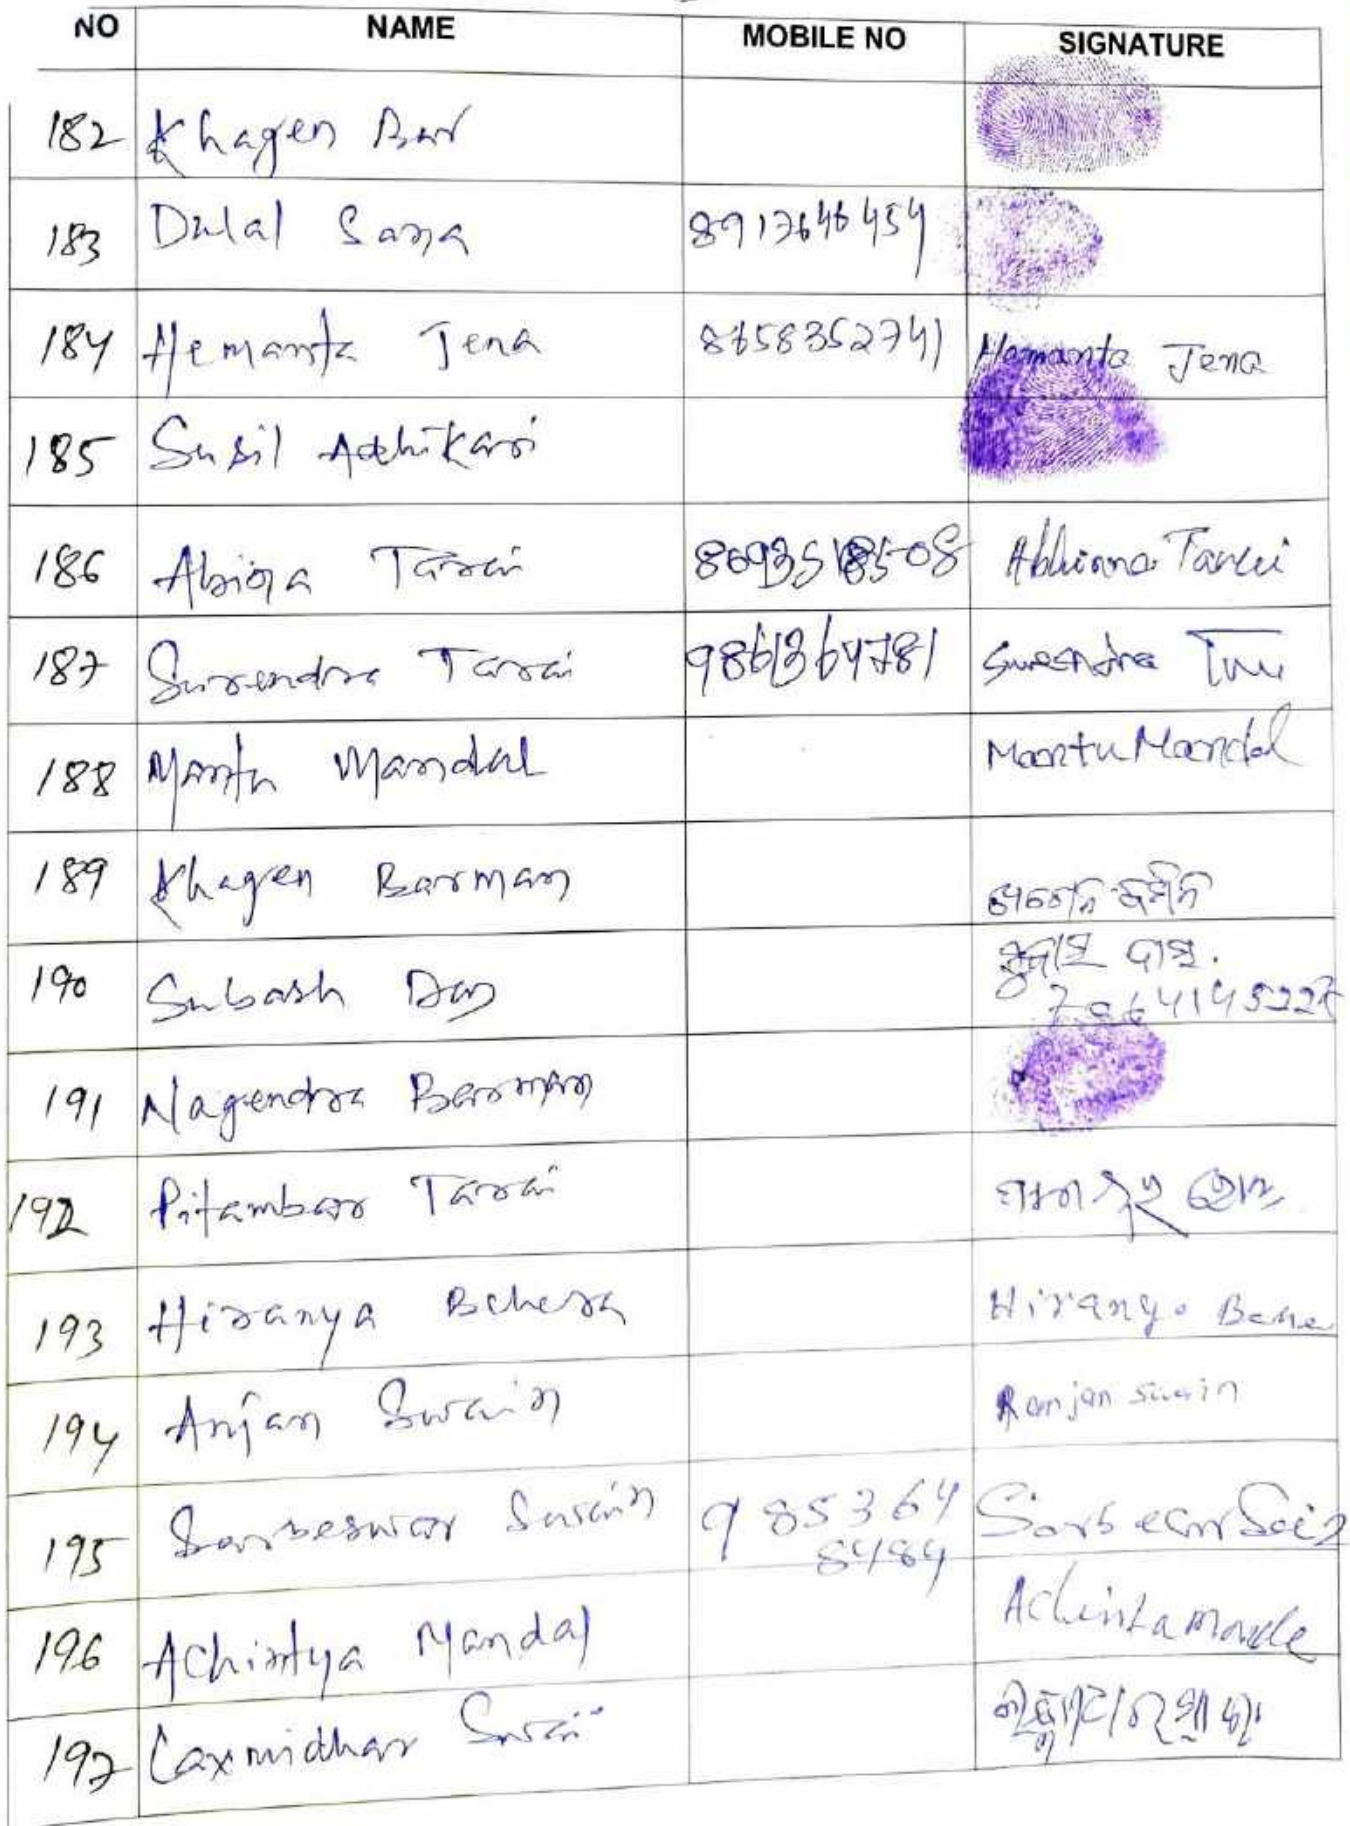 NO NAME MOBILE NO SIGNATURE
182 Khagen Bar
183 Dulal Sana 8917646454
184 Hemanta Jena 8658352741 Hemanta Jena
185 Susil Adhikari
186 Abina Tarai Abhinna Tarei
187 Surendra Tarai 9861364781 Surendra
188 Mantu Mandal Mantu Mandal
189 Khagen Barman ଖଗେନ ବର୍ମନ
190 Subash Das ସୁବାସ ଦାସ.
191 Nagendra Barman
192 Pitambar Tarai
193 Hiranya Behera Hiranya Behe
194 Anjan Swain Ranjan Swain
195 Sarbeswar Swain 985364
8484
196 Achintya Mandal Achinta
197 Laxmidhar Swain